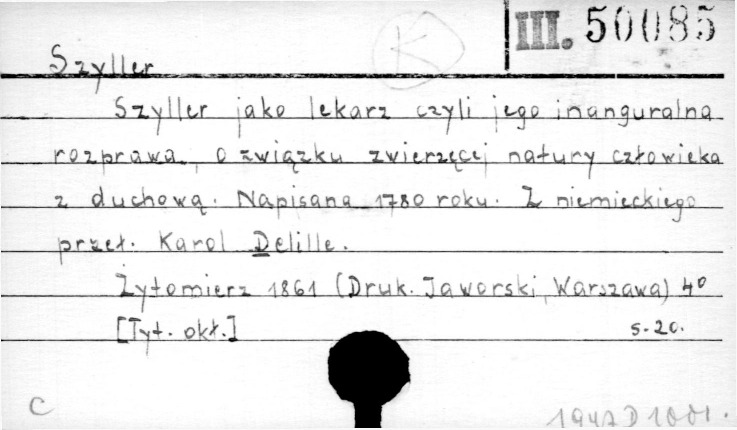 III. 50085
K
Szyller
Szyller jako lekarz czyli jego inanguralna
rozprawa, o związku zwierzęcej natury człowieka
z duchową. Napisana 1780 roku. Z niemieckiego
przeł. Karol Delille.
Żytomierz 1861 (Druk. Jaworski, Warszawa) 4°
[Tyt. okł.] s. 20.
C 1947 D 1001.